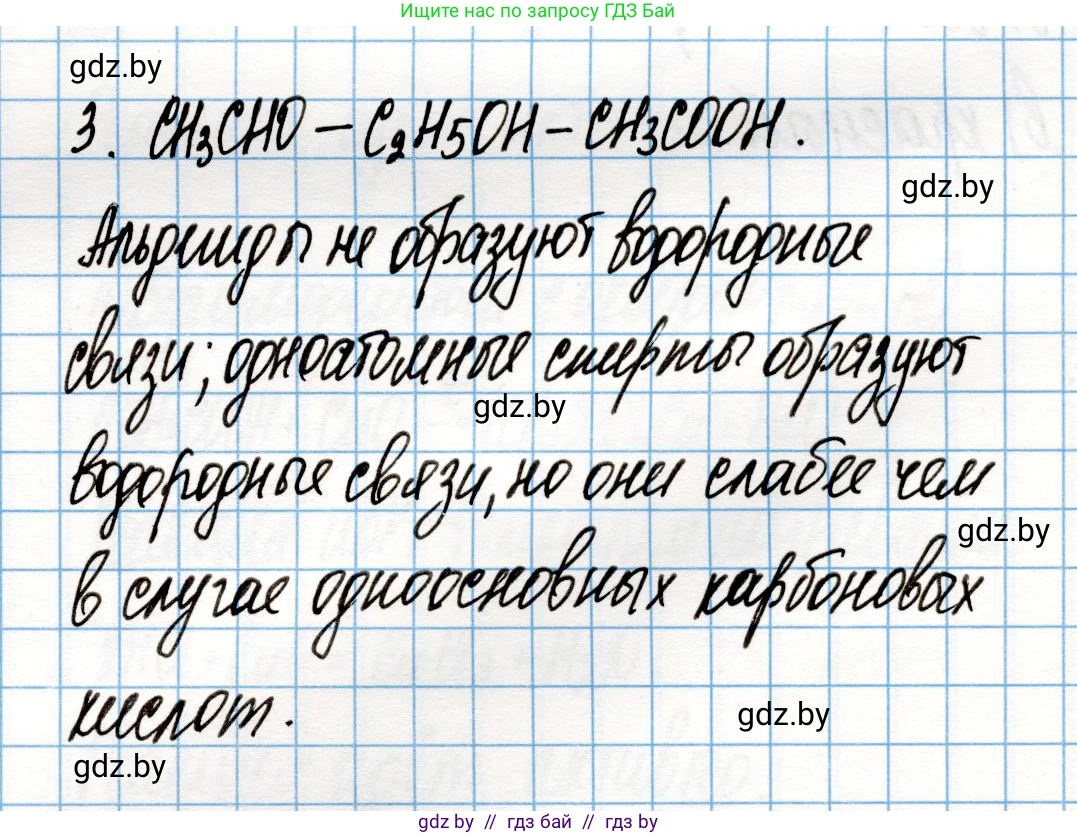 Ищите нас по запросу ГДЗ Бай
gdz.by
3. CH₃CHO – C₂H₅OH – CH₃COOH.
gdz.by
Альдегиды не образуют водородные
связи; одноатомные спирты образуют
gdz.by
водородные связи, но они слабее чем
gdz.by
в случае одноосновных карбоновых
кислот.
gdz.by
gdz.by
gdz.by // гдз бай // гдз by